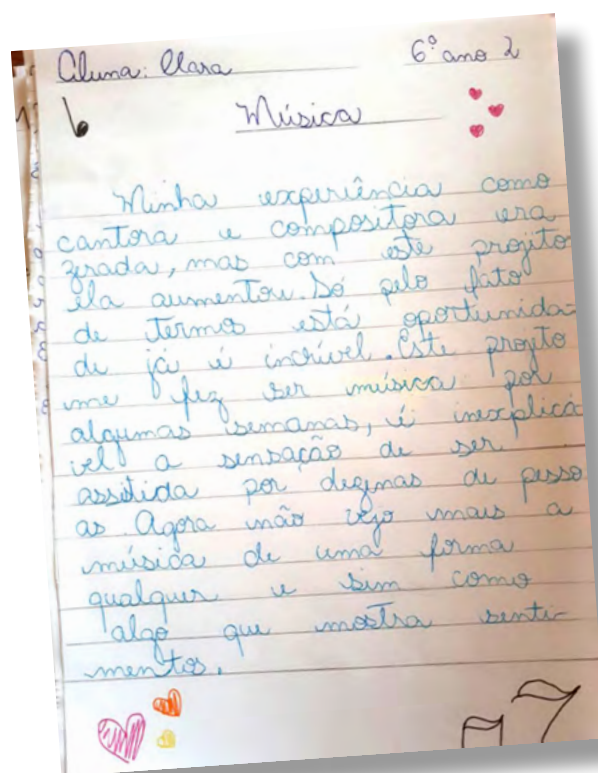 Aluna: Clara 6º ano 2
Música
Minha experiência como
cantora e compositora era
zerada, mas com este projeto
ela aumentou. Só pelo fato
de termos está oportunida-
de já é incrível. Este projeto
me fez ser música por
algumas semanas, é inexplicá
vel a sensação de ser
assitida por dezenas de pesso
as. Agora não vejo mais a
música de uma forma
qualquer e sim como
algo que mostra senti-
mentos.